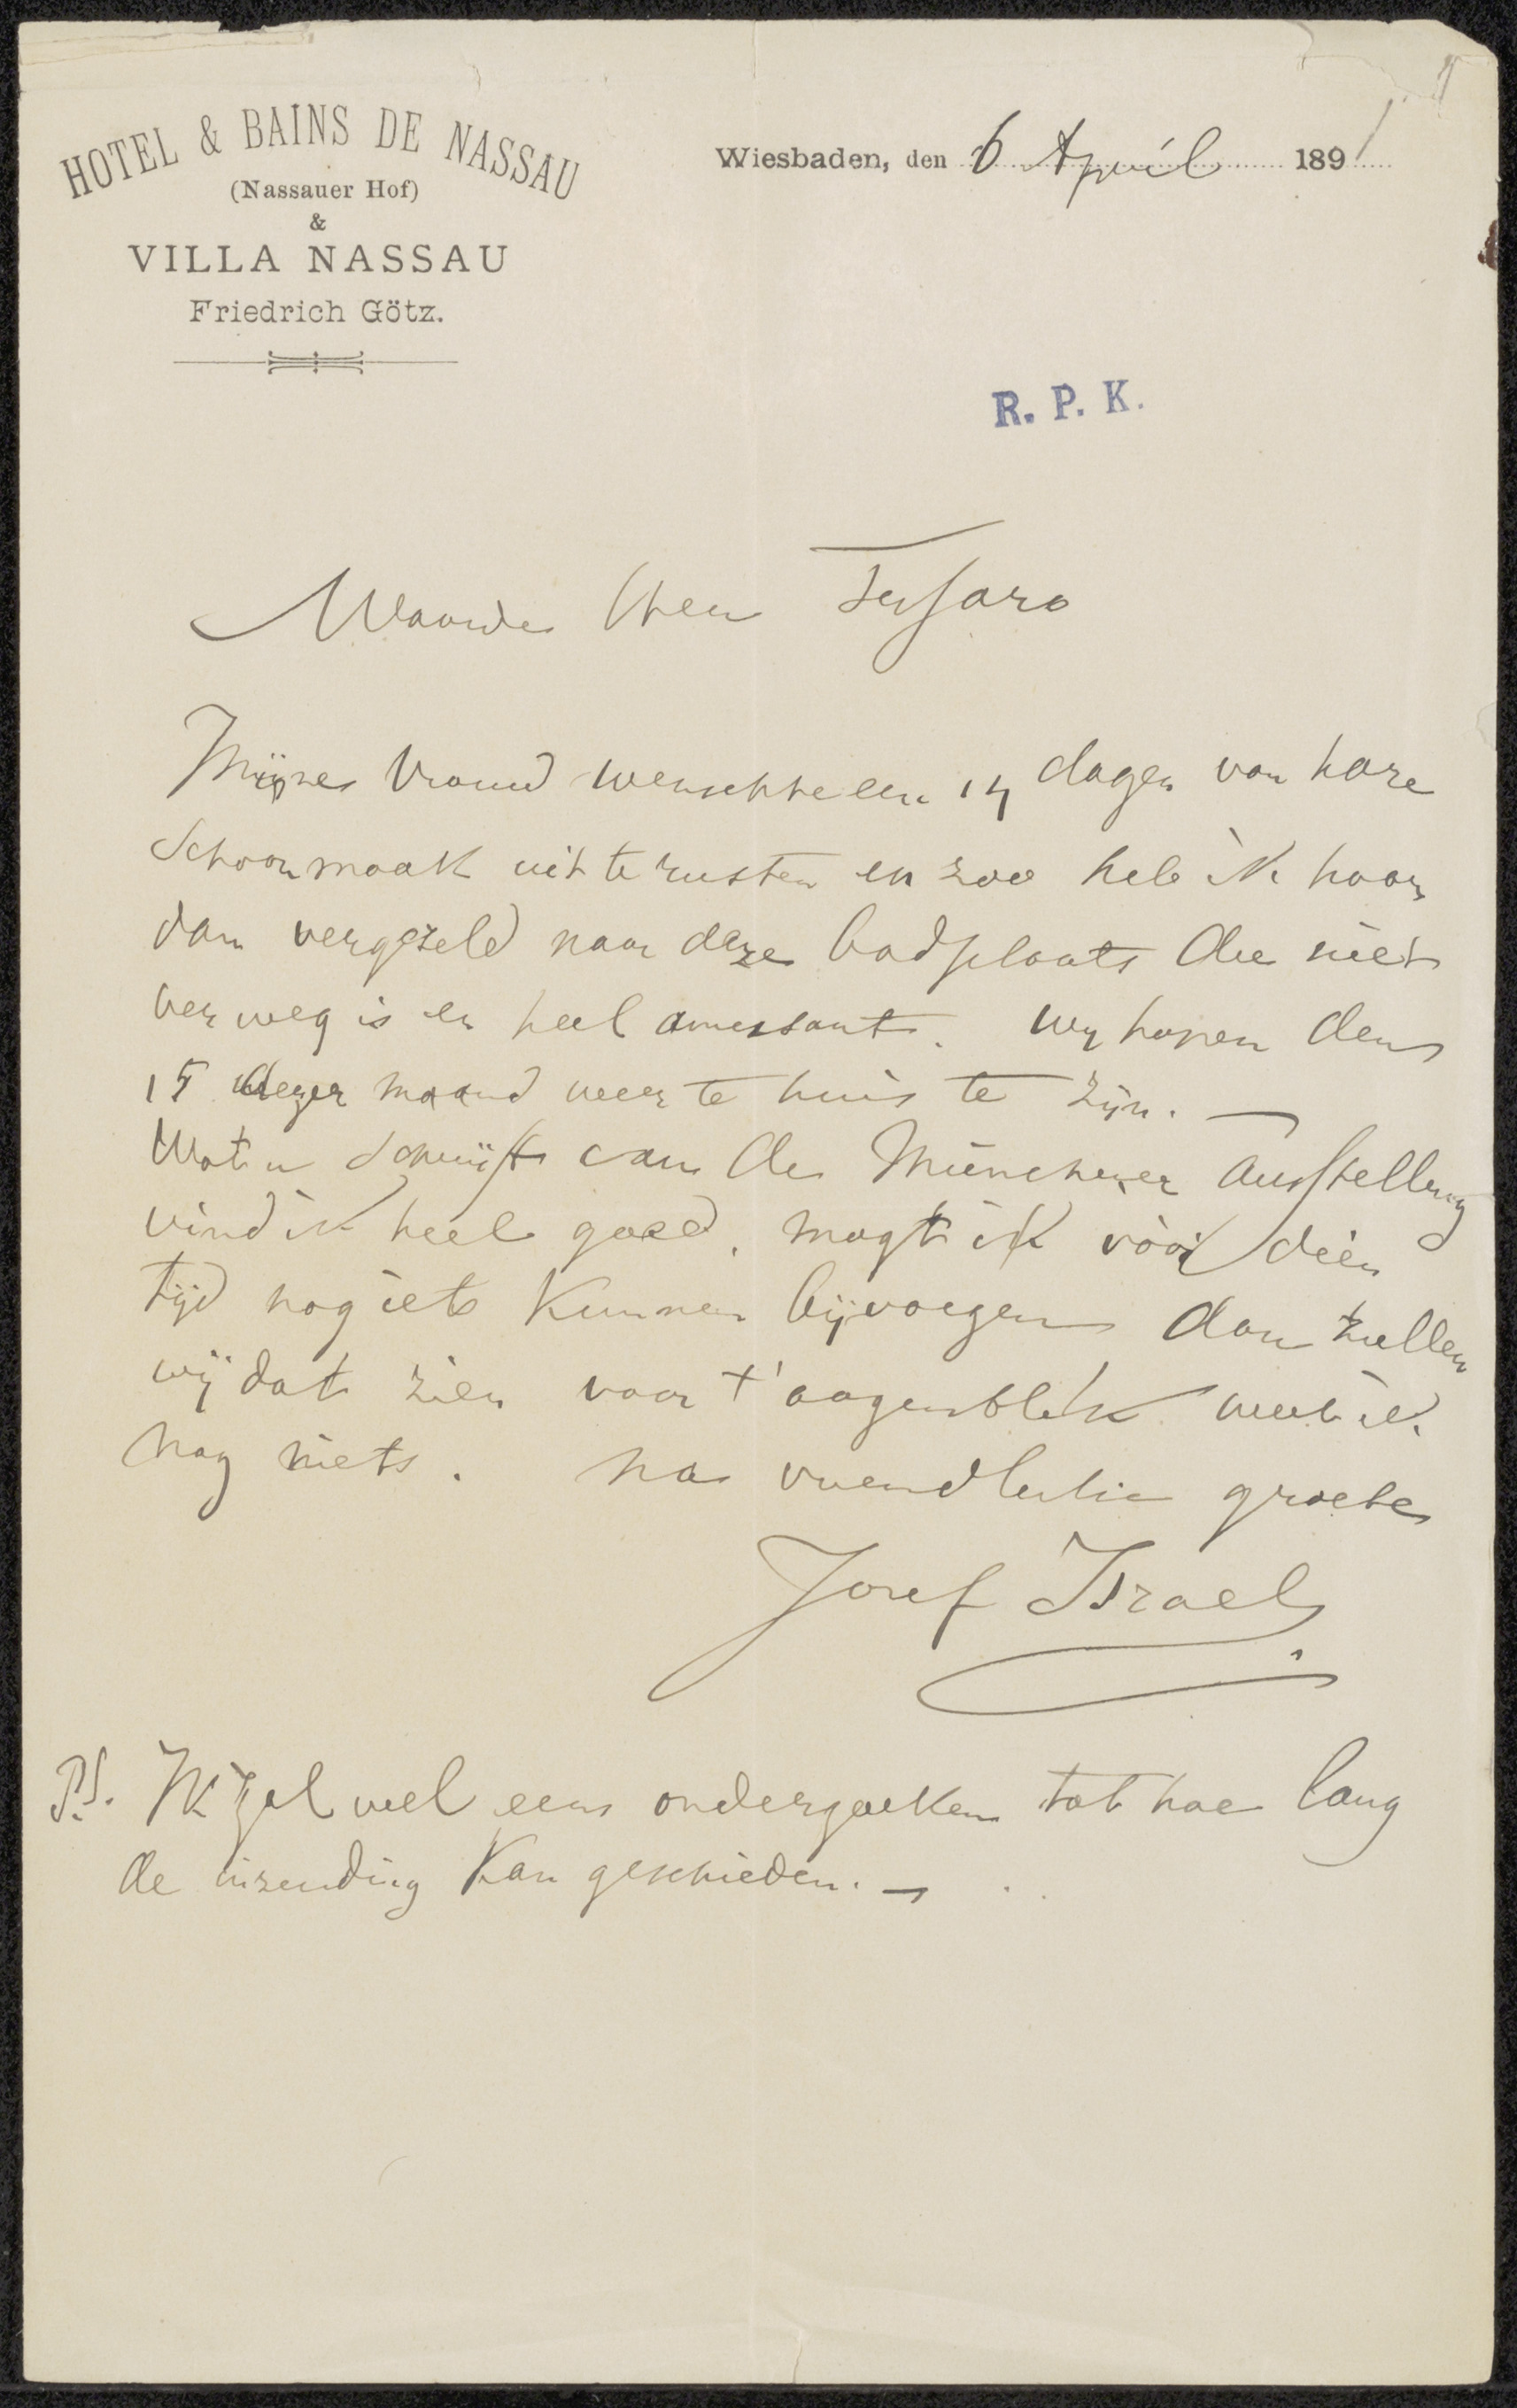 HOTEL & BAINS DE NASSAU
(Nassauer Hof)
&
VILLA NASSAU
Friedrich Götz.
Wiesbaden, den 6 April 1891
R. P. K.
Waarde Heer Tersaro
Mijne Vrouw wenschte een 14 dagen van hare
Schoonmaak uit te rusten en zoo heb ik haar
dan vergezeld naar deze badplaats die niet
ver weg is en heel amusant. Wy hopen den
15 dezer maand weer te huis te zijn. —
Wat u schrijft van de Münchener Ausstellung
vind ik heel goed, mogt ik vóór dien
tijd nog iets kunnen bijvoegen dan zullen
wij dat zien voor t' oogenblik weet ik
nog niets. na vriendelyke groete
Jozef Israels
P.S. Ik zal wel eens onderzoeken tot hoe lang
de inzending kan geschieden. —